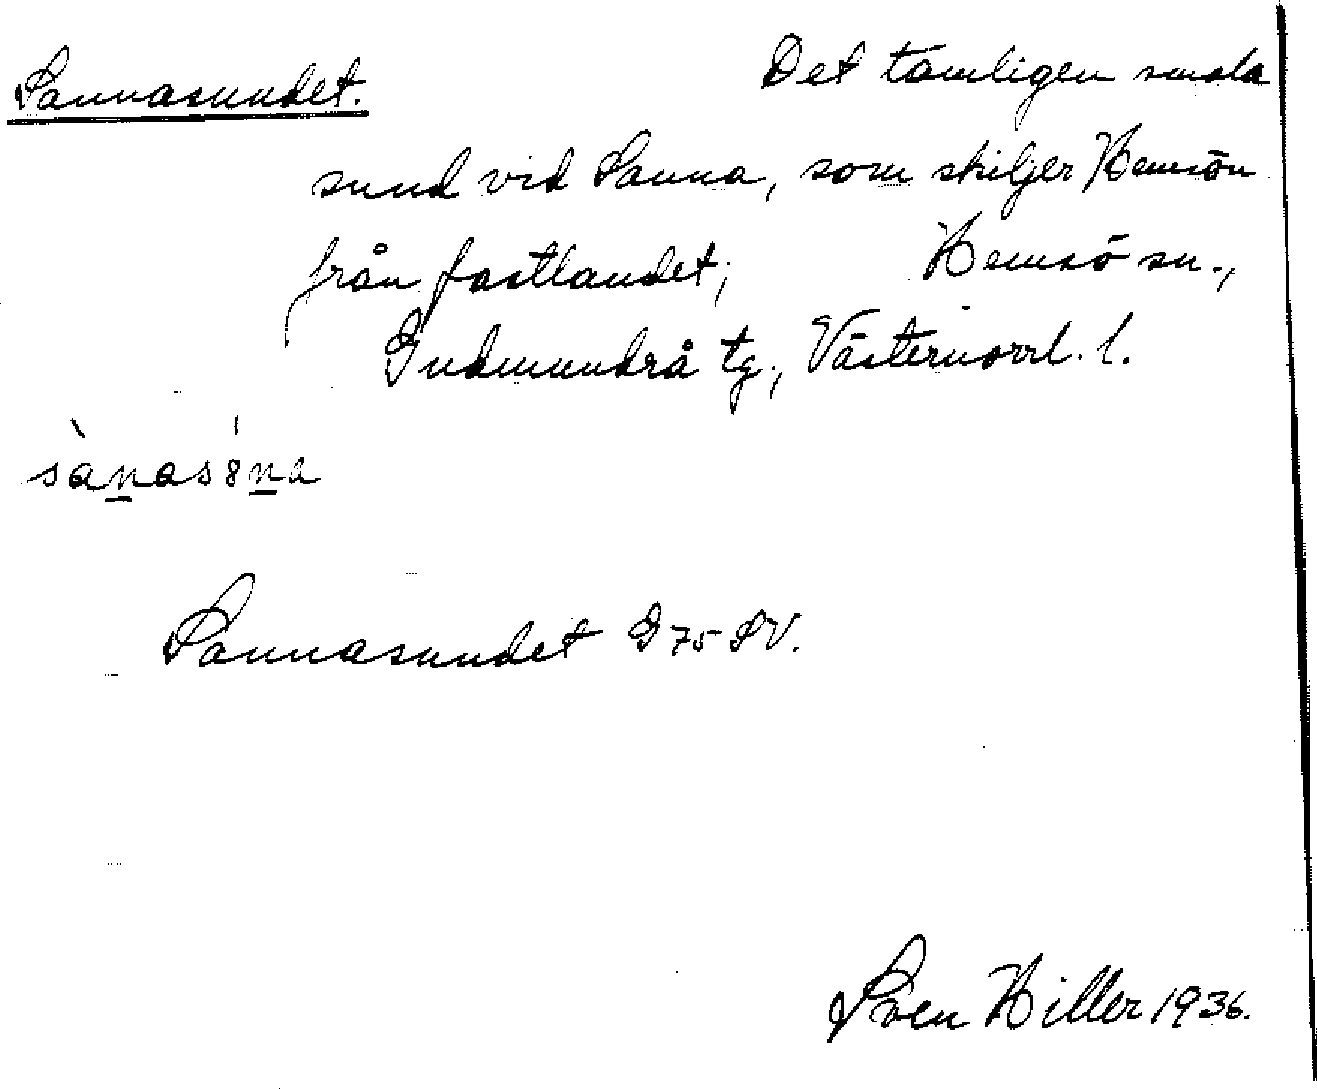 Sannasundet. Det tämligen smala
sund vid Sanna, som skiljer Hemsön
från fastlandet; Hemsö sn.,
Gudmundrå tg., Västernorrl. l.
sànas8́na
Sannasundet G 75 SV.
Sven Hiller 1936.